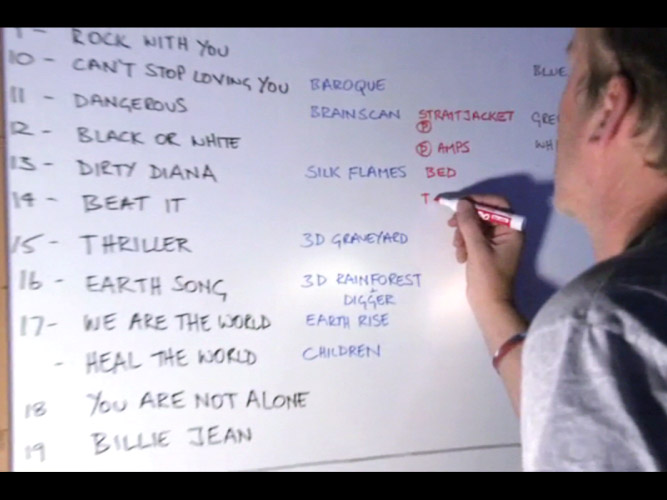 9 - ROCK WITH YOU
10 - CAN'T STOP LOVING YOU BAROQUE BLUE
11 - DANGEROUS BRAINSCAN STRAITJACKET
P
12 - BLACK OR WHITE AMPS
13 - DIRTY DIANA SILK FLAMES BED
14 - BEAT IT T
15 - THRILLER 3D GRAVEYARD
16 - EARTH SONG 3D RAINFOREST
+ DIGGER
17 - WE ARE THE WORLD EARTH RISE
- HEAL THE WORLD CHILDREN
18 YOU ARE NOT ALONE
19 BILLIE JEAN